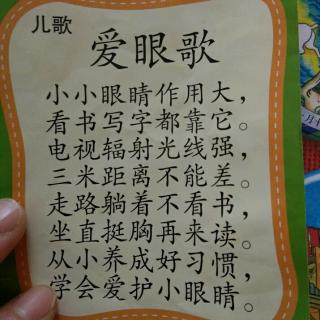 儿歌
爱眼歌
小小眼睛作用大，
看书写字都靠它。
电视辐射光线强，
三米距离不能差。
走路躺着不看书，
坐直挺胸再来读。
从小养成好习惯，
学会爱护小眼睛。